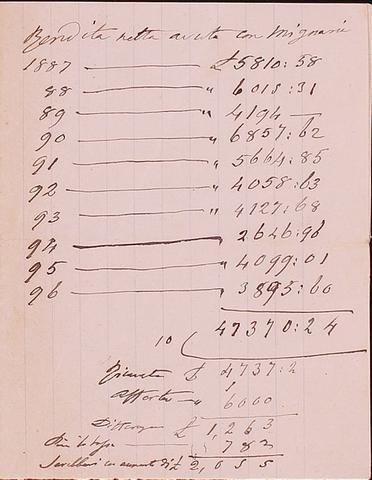 Rendita netta avuta con Mignani
1887 £ 5810:58
88 " 6013:31
89 " 4194 —
90 " 6857:62
91 " 5664:85
92 " 4058:63
93 " 4127:68
94 2646:96
95 " 4099:01
96 " 3895:60
47370:24
10
£ 4737:2
Offerta " 6000
Differenza £ 1,263
783
in aumento di £ 2,055